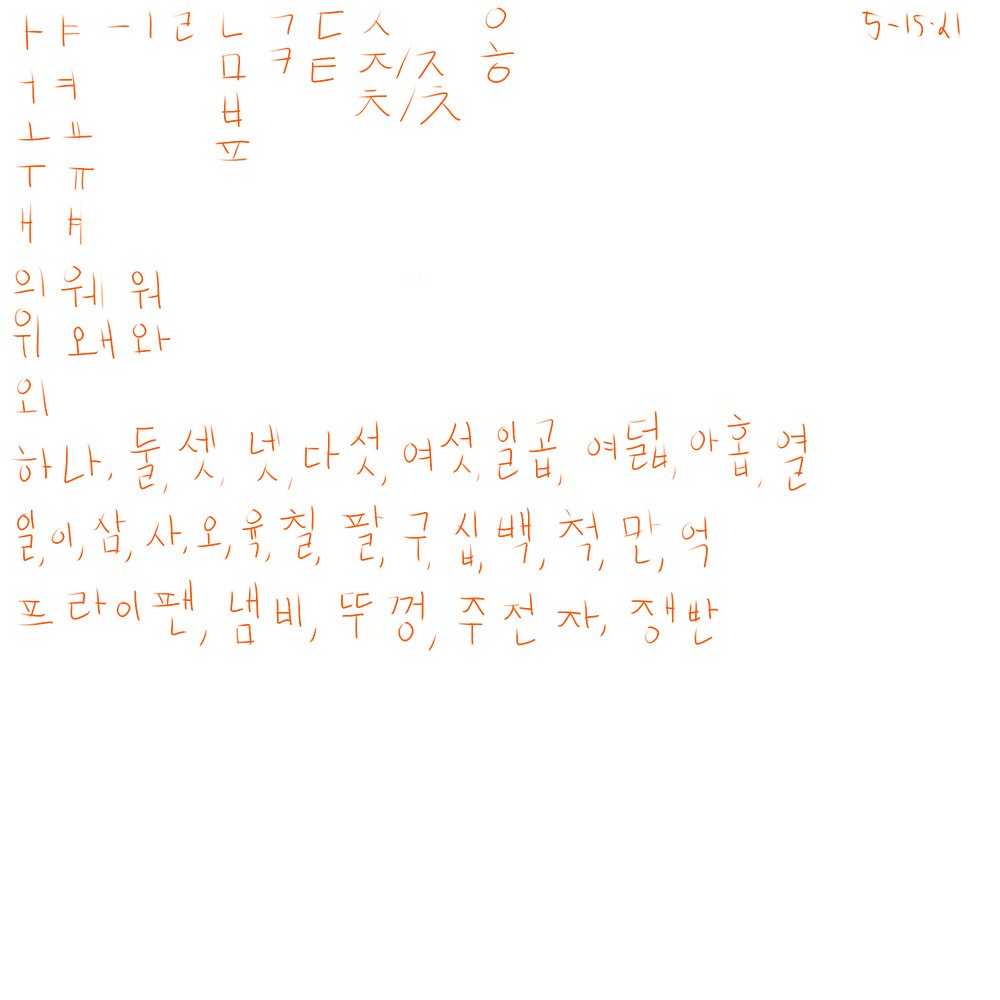 ㅏ ㅑ ㅡ ㅣ ㄹ ㄴ ㄱ ㄷ ㅅ ㅇ 5-15-21
ㅓ ㅕ ㅁ ㅋ ㅌ ㅈ/ㅈ ㅎ
ㅗ ㅛ ㅂ ㅊ/ㅊ
ㅜ ㅠ ㅍ
ㅐ ㅒ
의 웨 워
위 왜 와
외
하나, 둘, 셋, 넷, 다섯, 여섯, 일곱, 여덟, 아홉, 열
일, 이, 삼, 사, 오, 육, 칠, 팔, 구, 십, 백, 척, 만, 억
프라이팬, 냄비, 뚜껑, 주전자, 쟁반